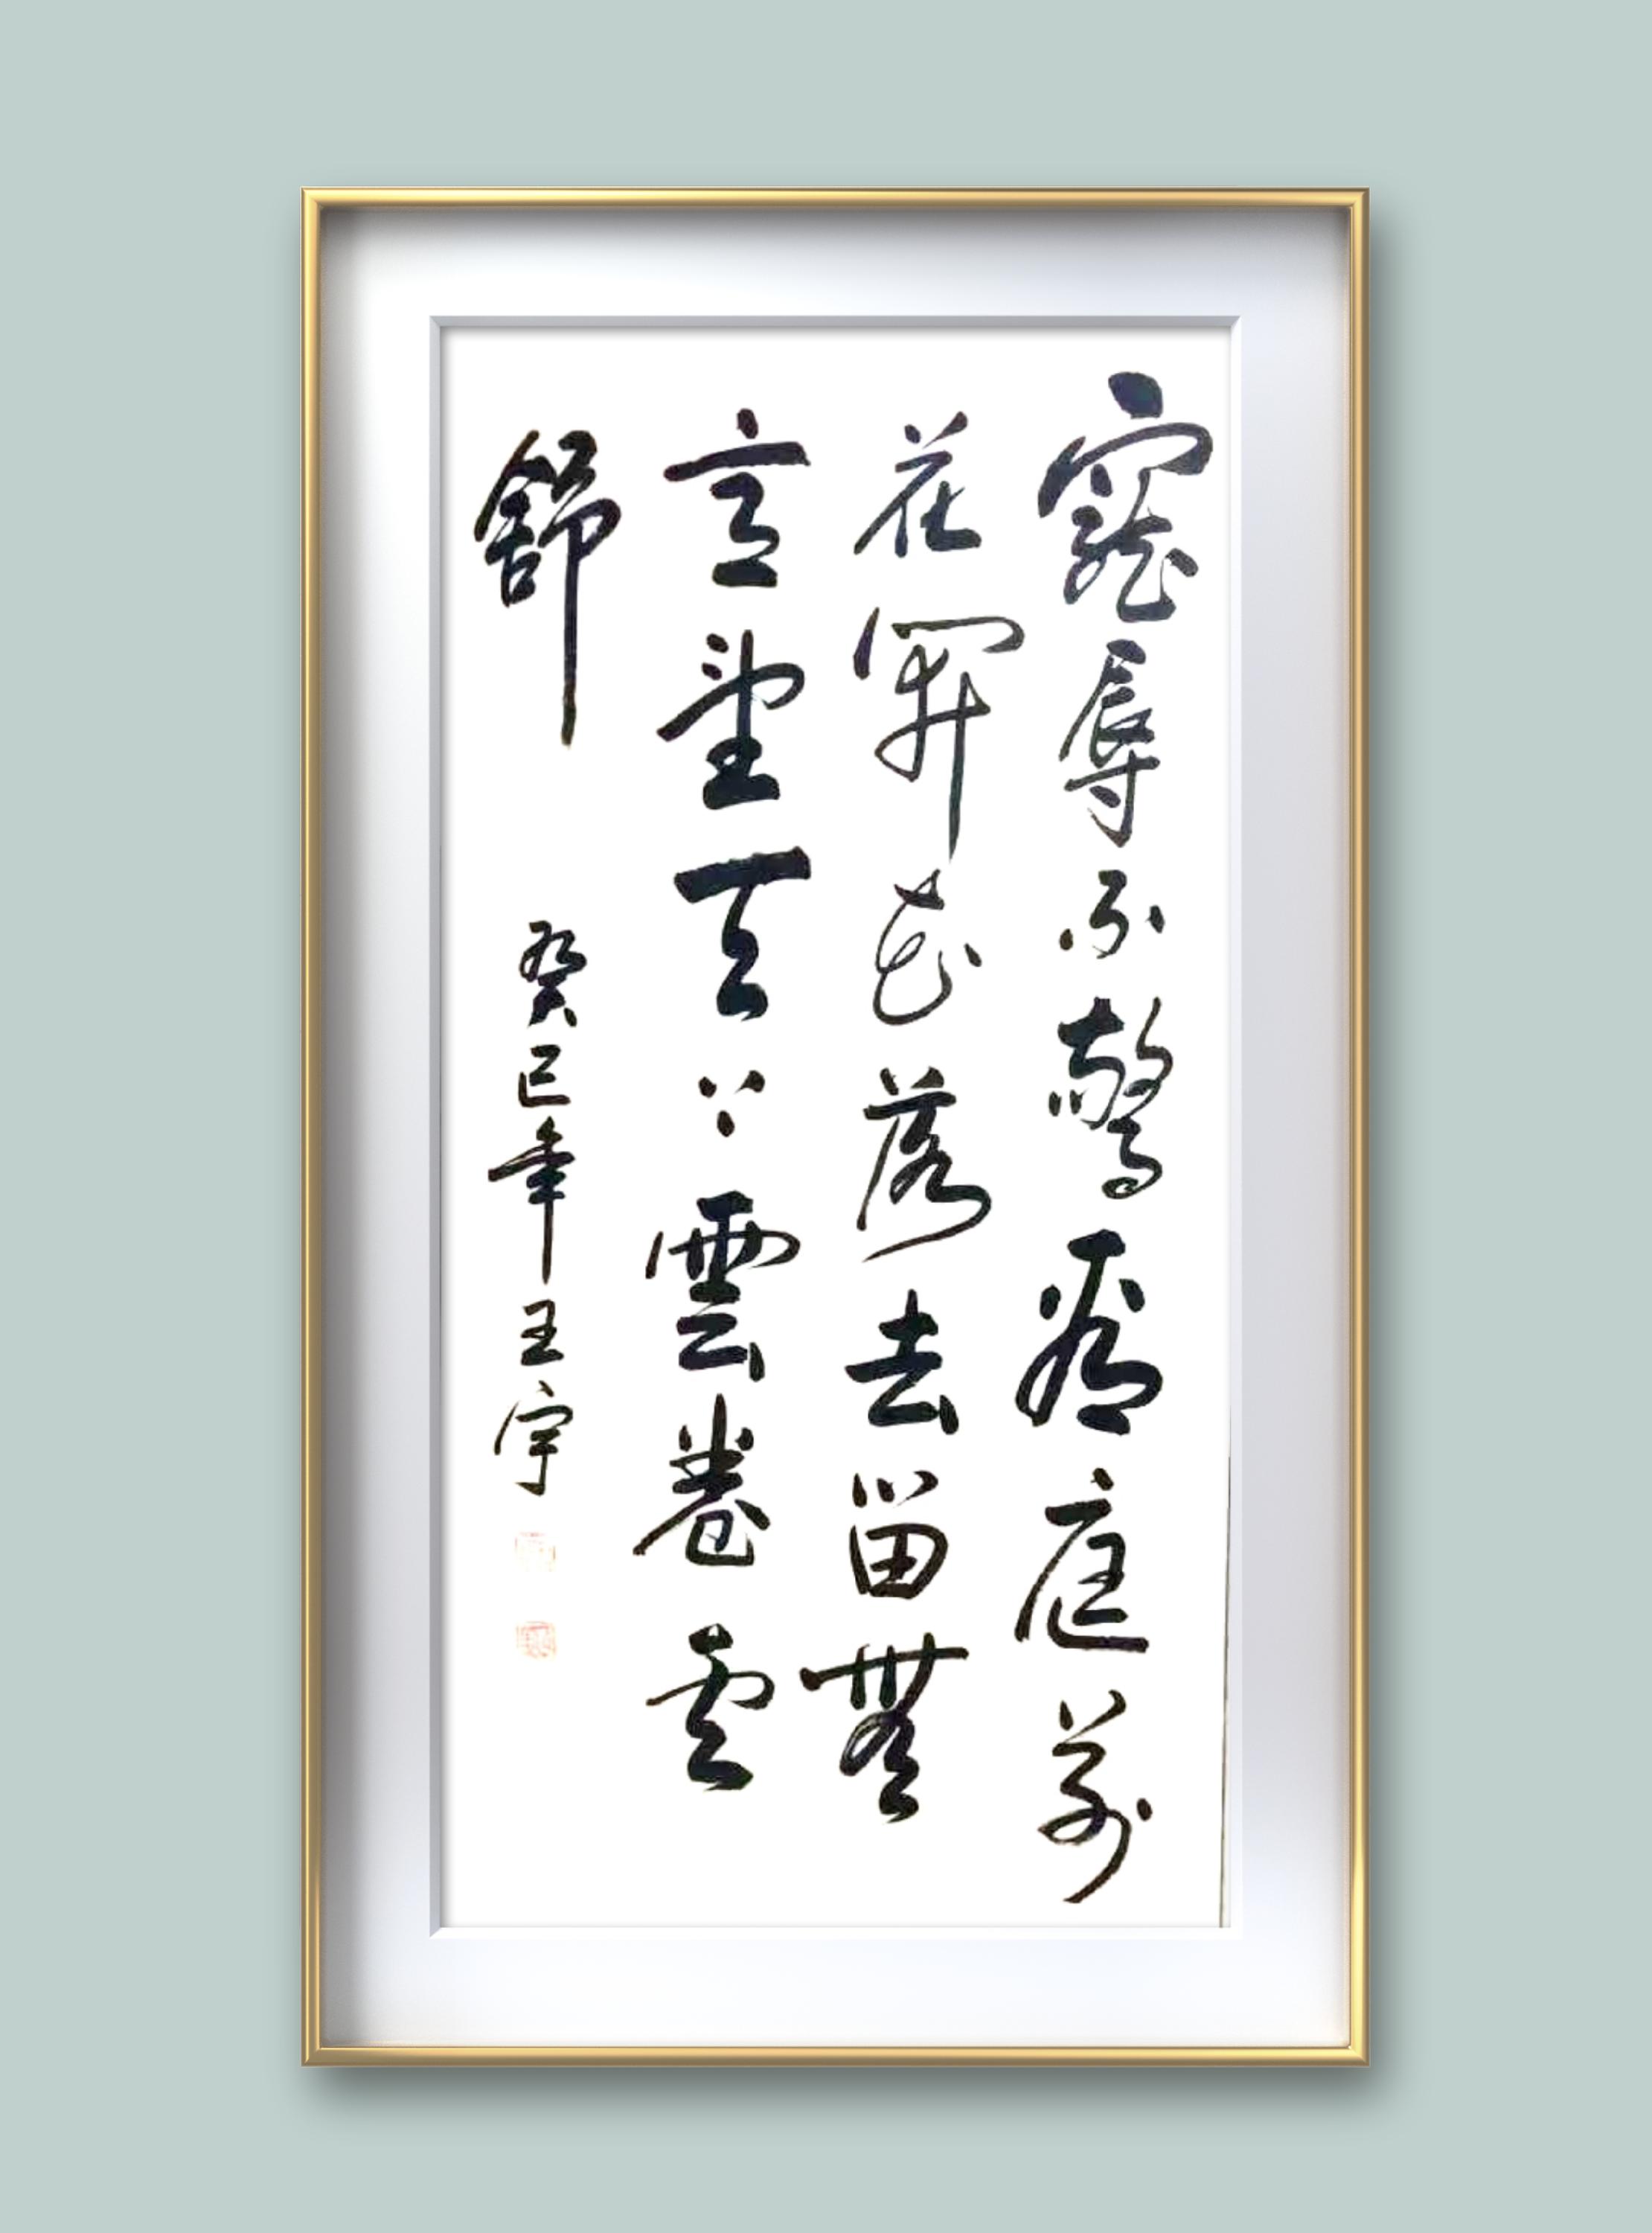 寵辱不驚看庭前
花開花落去留無
意望天上雲卷雲
舒
癸巳年王宇